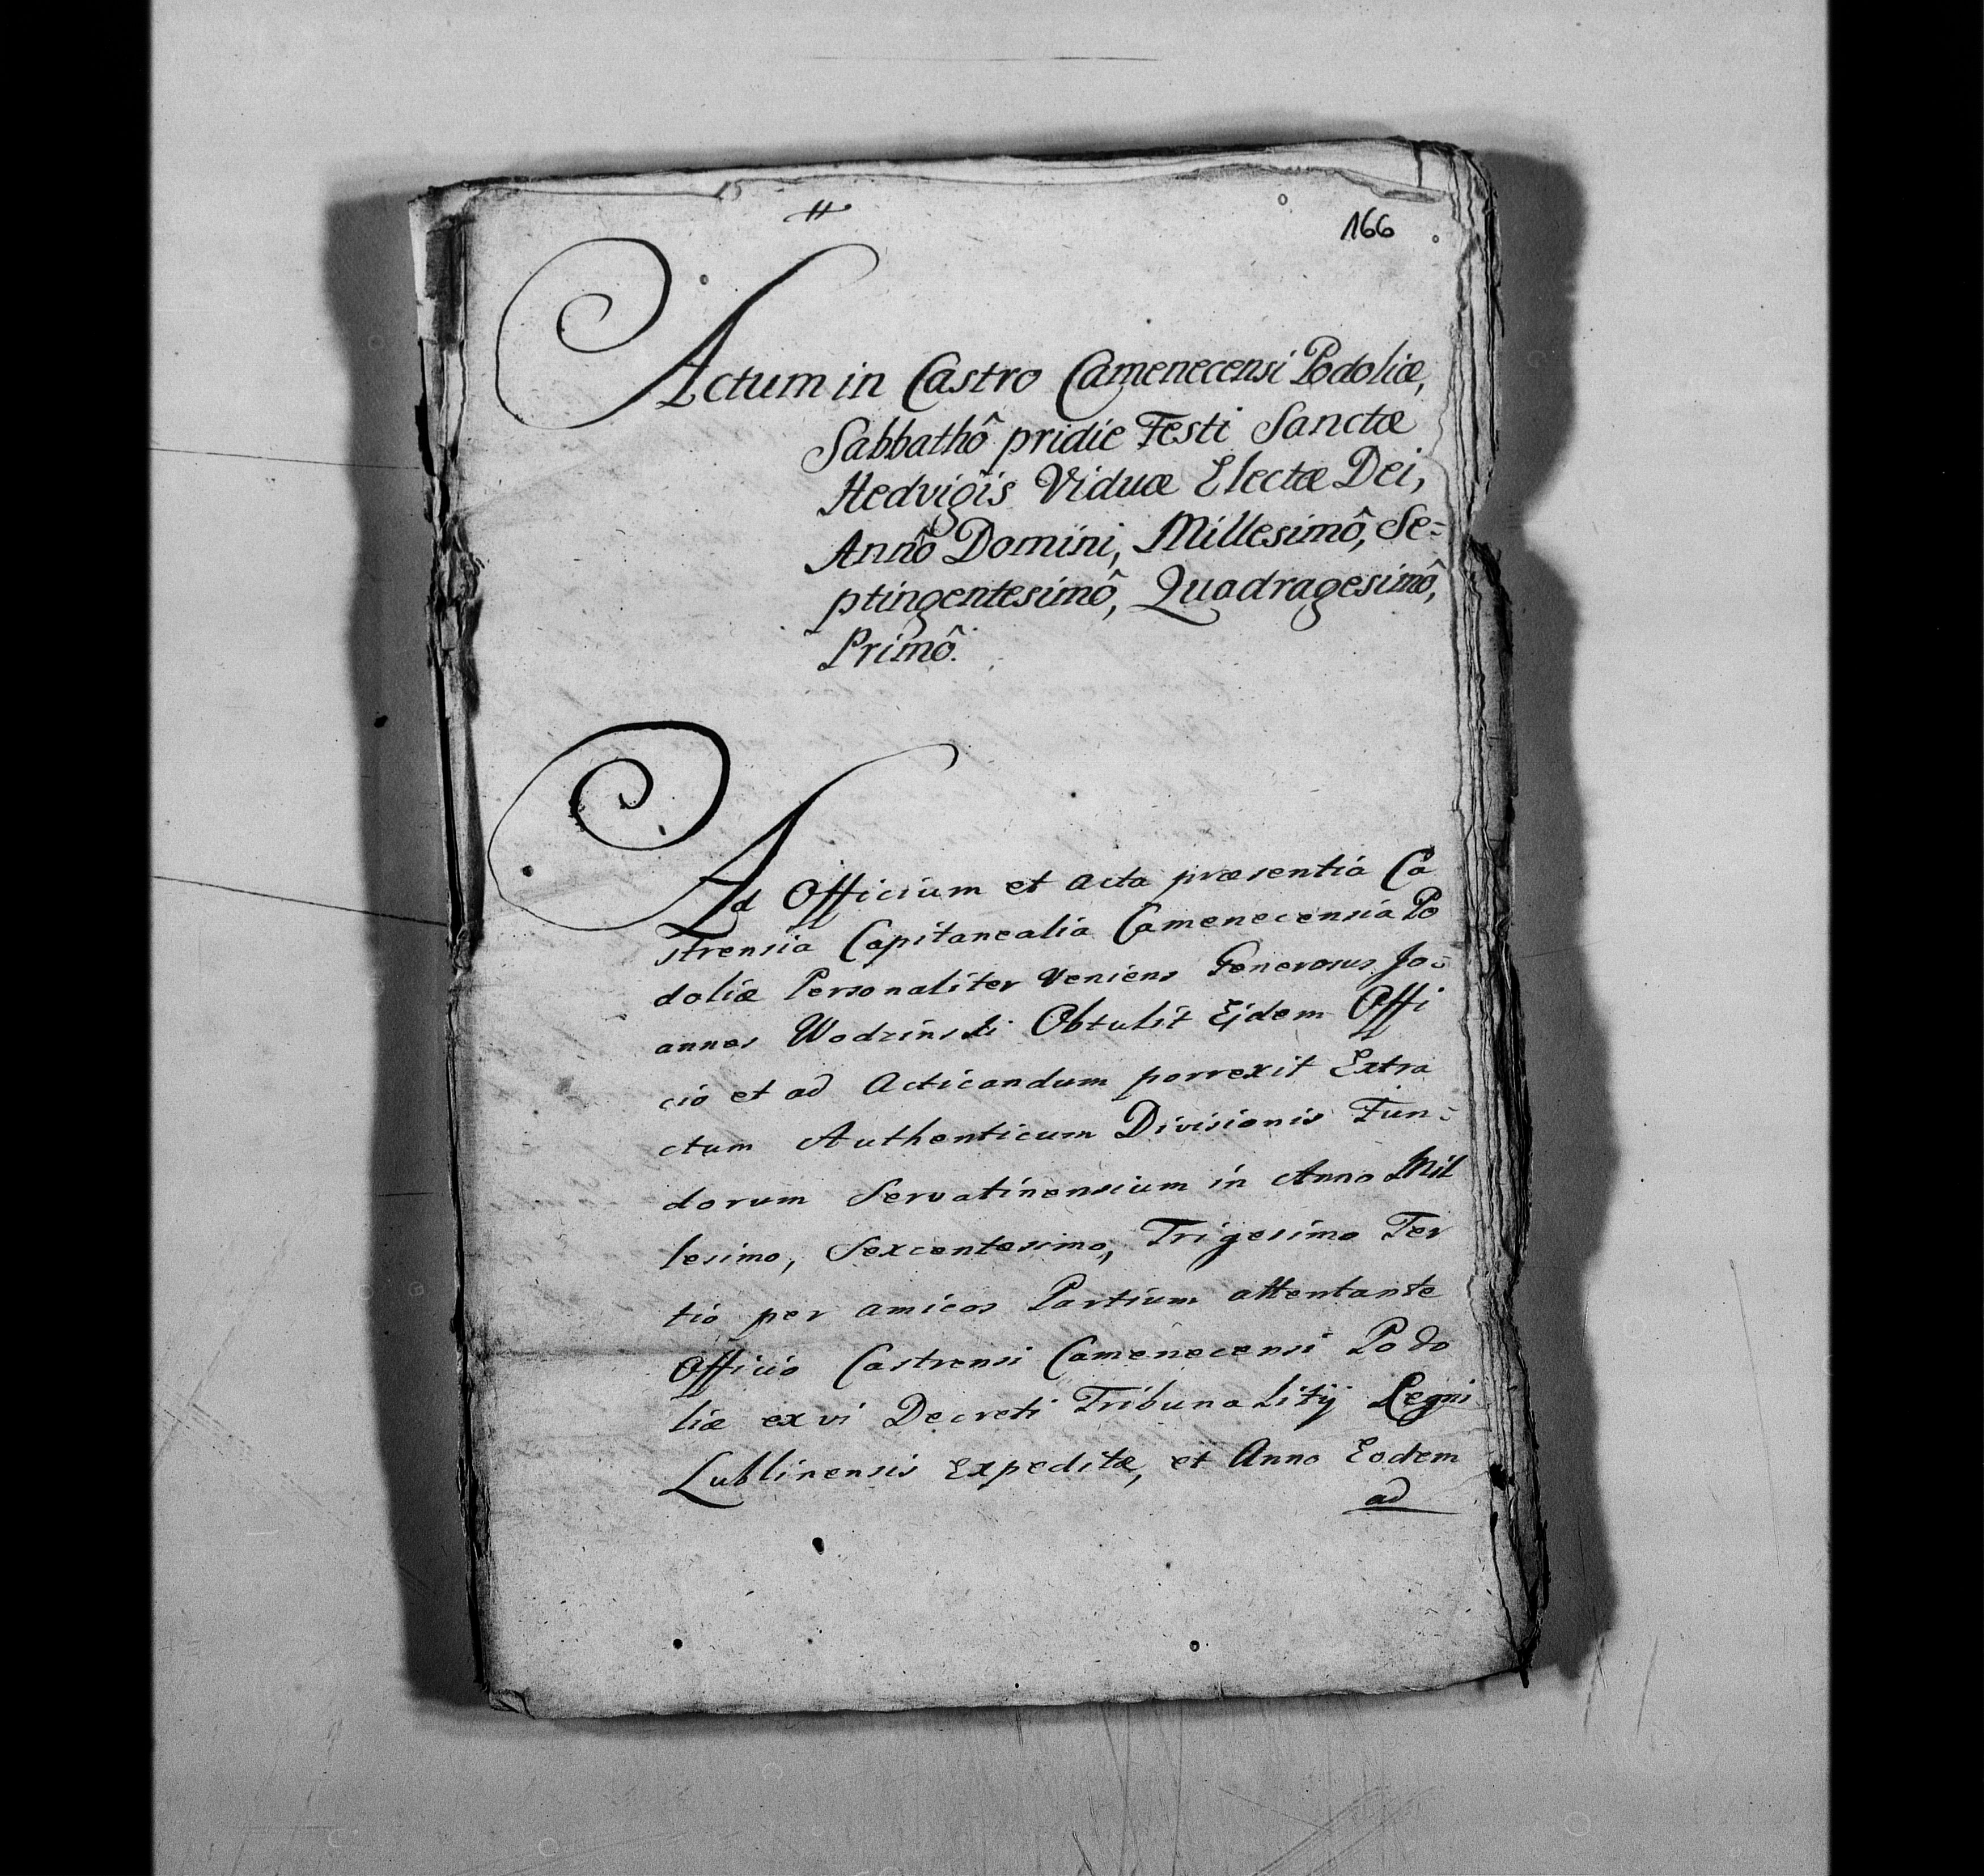 166
Actum in Castro Camenecensi Podoliæ,
Sabbathô pridie Festi Sanctæ
Hedvigis Viduæ Electæ Dei,
Annô Domini, Millesimô, Se=
ptingentesimô, Quadragesimô,
Primô.
Ad Officium et acta præsentia Ca
strensia Capitanealia Camenecensia Po
doliæ Personaliter Veniens Generosus Jo=
annes Wodzinski Obtulit Ejdem Offi
cio et ad Acticandum porrexit Extra
ctum Authenticum Divisionis Fun=
dorum Servatinensium in Anno Mil
lesimo, Sexcentesimo, Trigesimo Ter
tio per amicos Partium attentante
Officio Castrensi Camenecensi Podo
liæ ex vi Decreti Tribunalitij Regni
Lublinensis Expeditæ, et Anno Eodem
ad